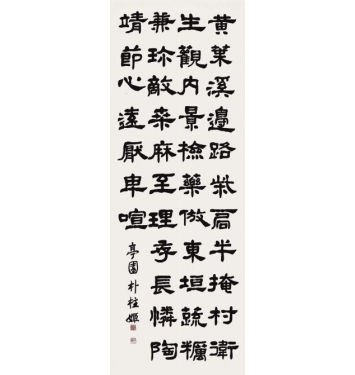 黃葉溪邊路柴扃半掩村衛
生觀內景檢藥倣東垣蔬糲
兼珍敵桑麻至理存長憐陶
靖節心遠厭卑喧
亭園朴桂姬